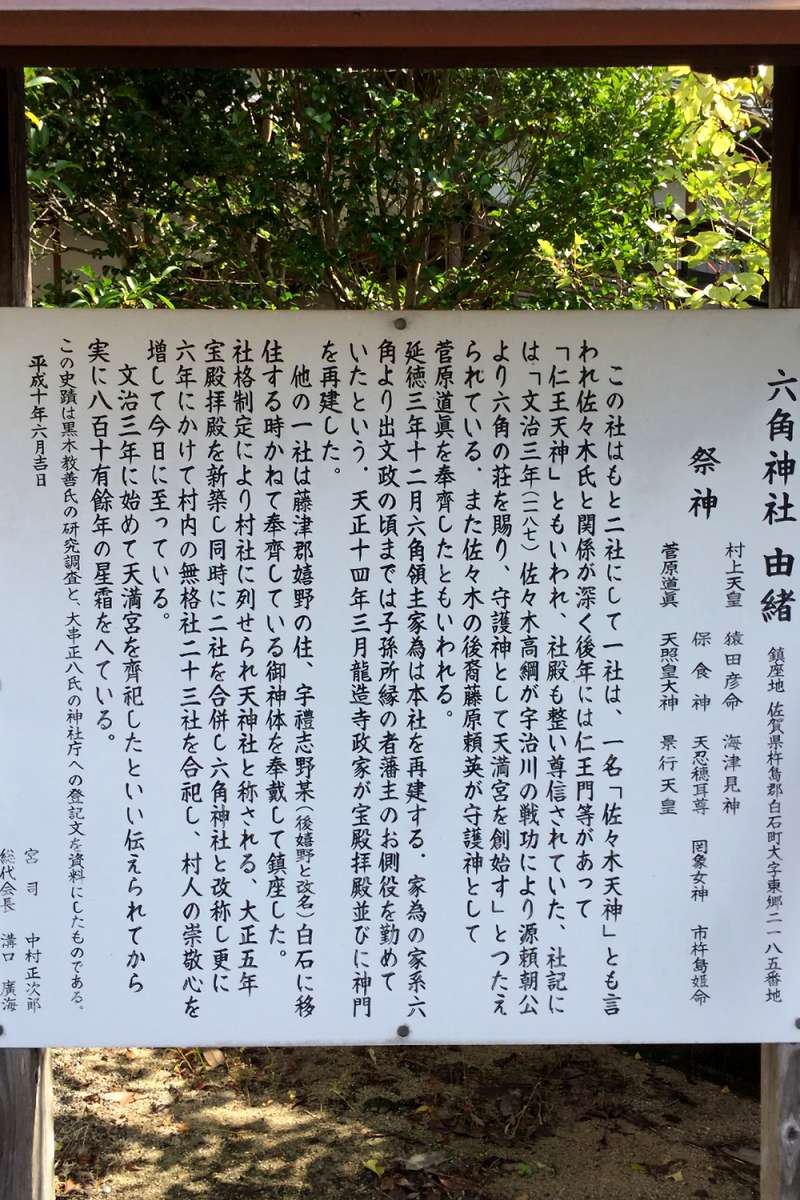 六角神社 由緒 鎮座地 佐賀県杵島郡白石町大字東郷二一八五番地
祭神
村上天皇 猿田彦命 海津見神
保食神 天忍穂耳尊 罔象女神 市杵島姫命
菅原道眞 天照皇大神 景行天皇
この社はもと二社にして一社は、一名「佐々木天神」とも言
われ佐々木氏と関係が深く後年には仁王門等があって
「仁王天神」ともいわれ、社殿も整い尊信されていた、社記に
は「文治三年(一一八七)佐々木高綱が宇治川の戦功により源頼朝公
より六角の荘を賜り、守護神として天満宮を創始す」とつたえ
られている．また佐々木の後裔藤原頼英が守護神として
菅原道眞を奉齊したともいわれる。
延徳三年十二月六角領主家為は本社を再建する．家為の家系六
角より出文政の頃までは子孫所縁の者藩主のお側役を勤めて
いたという．天正十四年三月龍造寺政家が宝殿拝殿並びに神門
を再建した。
他の一社は藤津郡嬉野の住、宇禮志野某(後嬉野と改名)白石に移
住する時かねて奉齊している御神体を奉戴して鎮座した。
社格制定により村社に列せられ天神社と称される、大正五年
宝殿拝殿を新築し同時に二社を合併し六角神社と改称し更に
六年にかけて村内の無格社二十三社を合祀し、村人の崇敬心を
増して今日に至っている。
文治三年に始めて天満宮を齊祀したといい伝えられてから
実に八百十有餘年の星霜をへている。
この史蹟は黒木教善氏の研究調査と、大串正八氏の神社庁への登記文を資料にしたものである。
平成十年六月吉日
宮司 中村正次郎
総代会長 溝口廣海